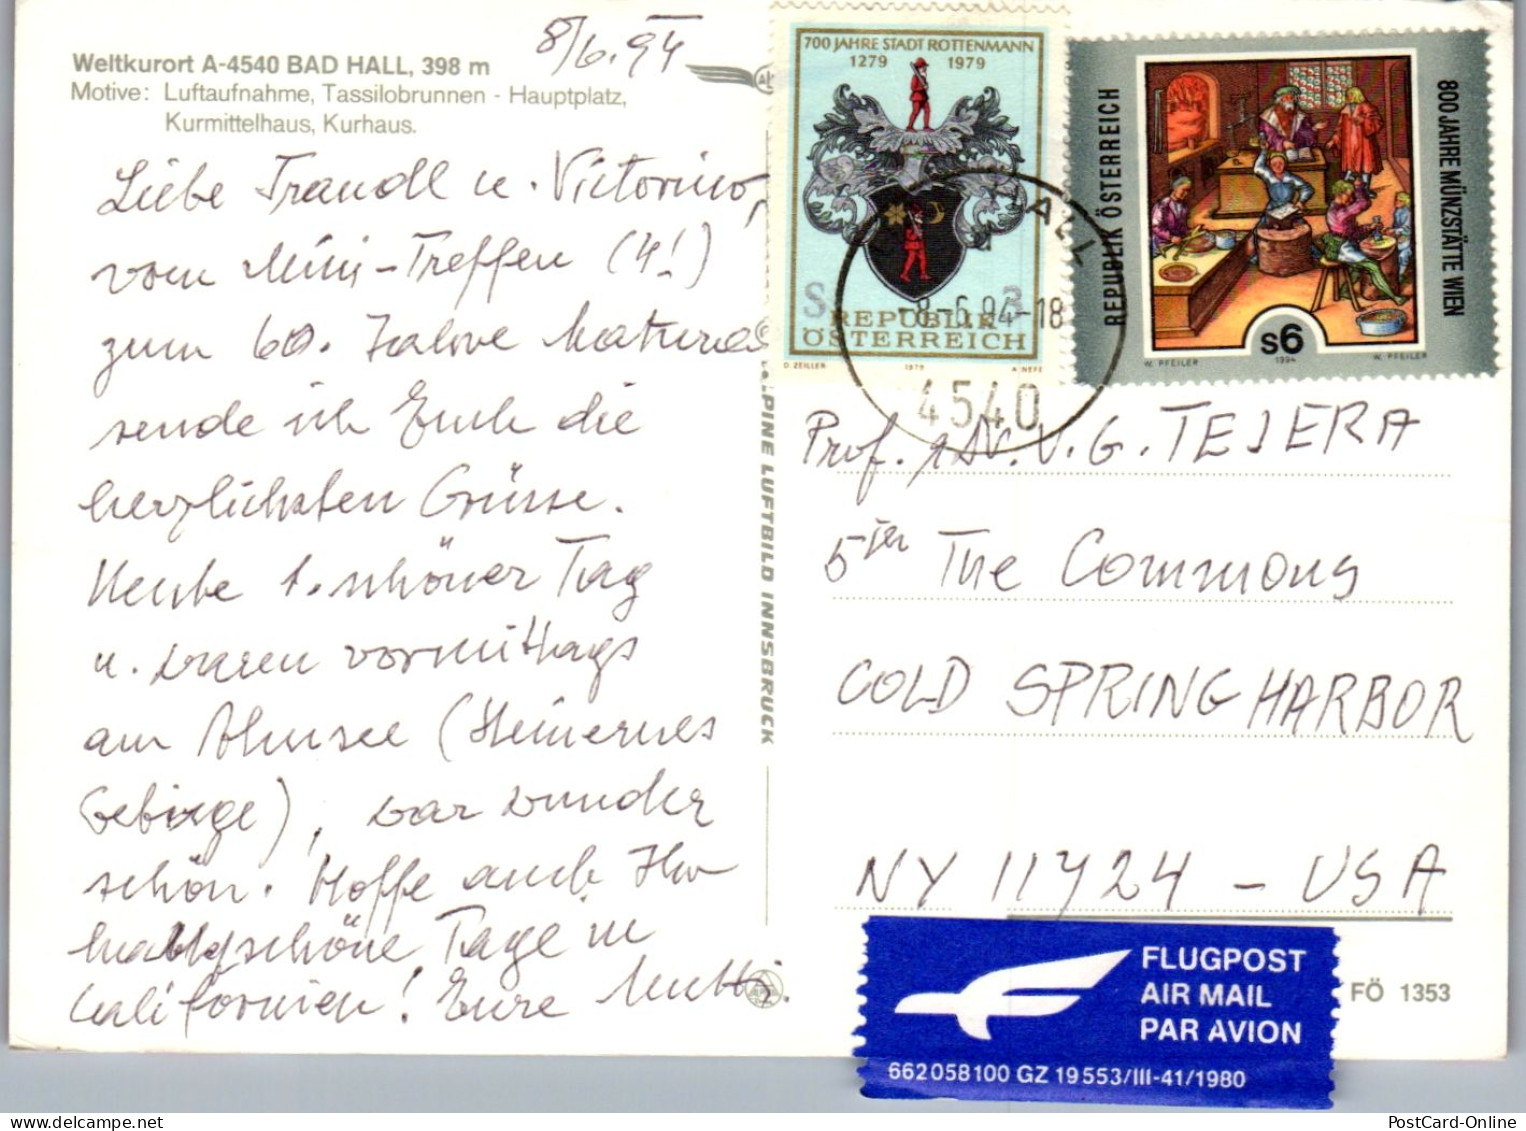 Weltkurort A-4540 BAD HALL, 398 m
Motive: Luftaufnahme, Tassilobrunnen - Hauptplatz,
Kurmittelhaus, Kurhaus.
8/6.94
Liebe Traudl u. Victorino,
vom Mini-Treffen (4!)
zum 60. Jahre Matura
sende ich Euch die
herzlichsten Grüsse.
Heute 1. schöner Tag
u. waren vormittags
am Almsee (
Gebirge), war wunder
schön. Hoffe auch Ihr
schöne Tage in
Californien! Eure Mutti.
ALPINE LUFTBILD INNSBRUCK
700 JAHRE STADT ROTTENMANN
1279 1979
S 3
REPUBLIK
ÖSTERREICH
D. ZEILLER 1979 A. NEFE
REPUBLIK ÖSTERREICH
800 JAHRE MÜNZSTÄTTE WIEN
S6
W. PFEILER 1994 W. PFEILER
HALL
-8.-6.94-18
4540
Prof. Dr. V. G. TEJERA
The Commons
COLD SPRING HARBOR
NY 11724 - USA
FLUGPOST
AIR MAIL
PAR AVION
662 058 100 GZ 19 553/III-41/1980
FÖ 1353
PostCard-Online